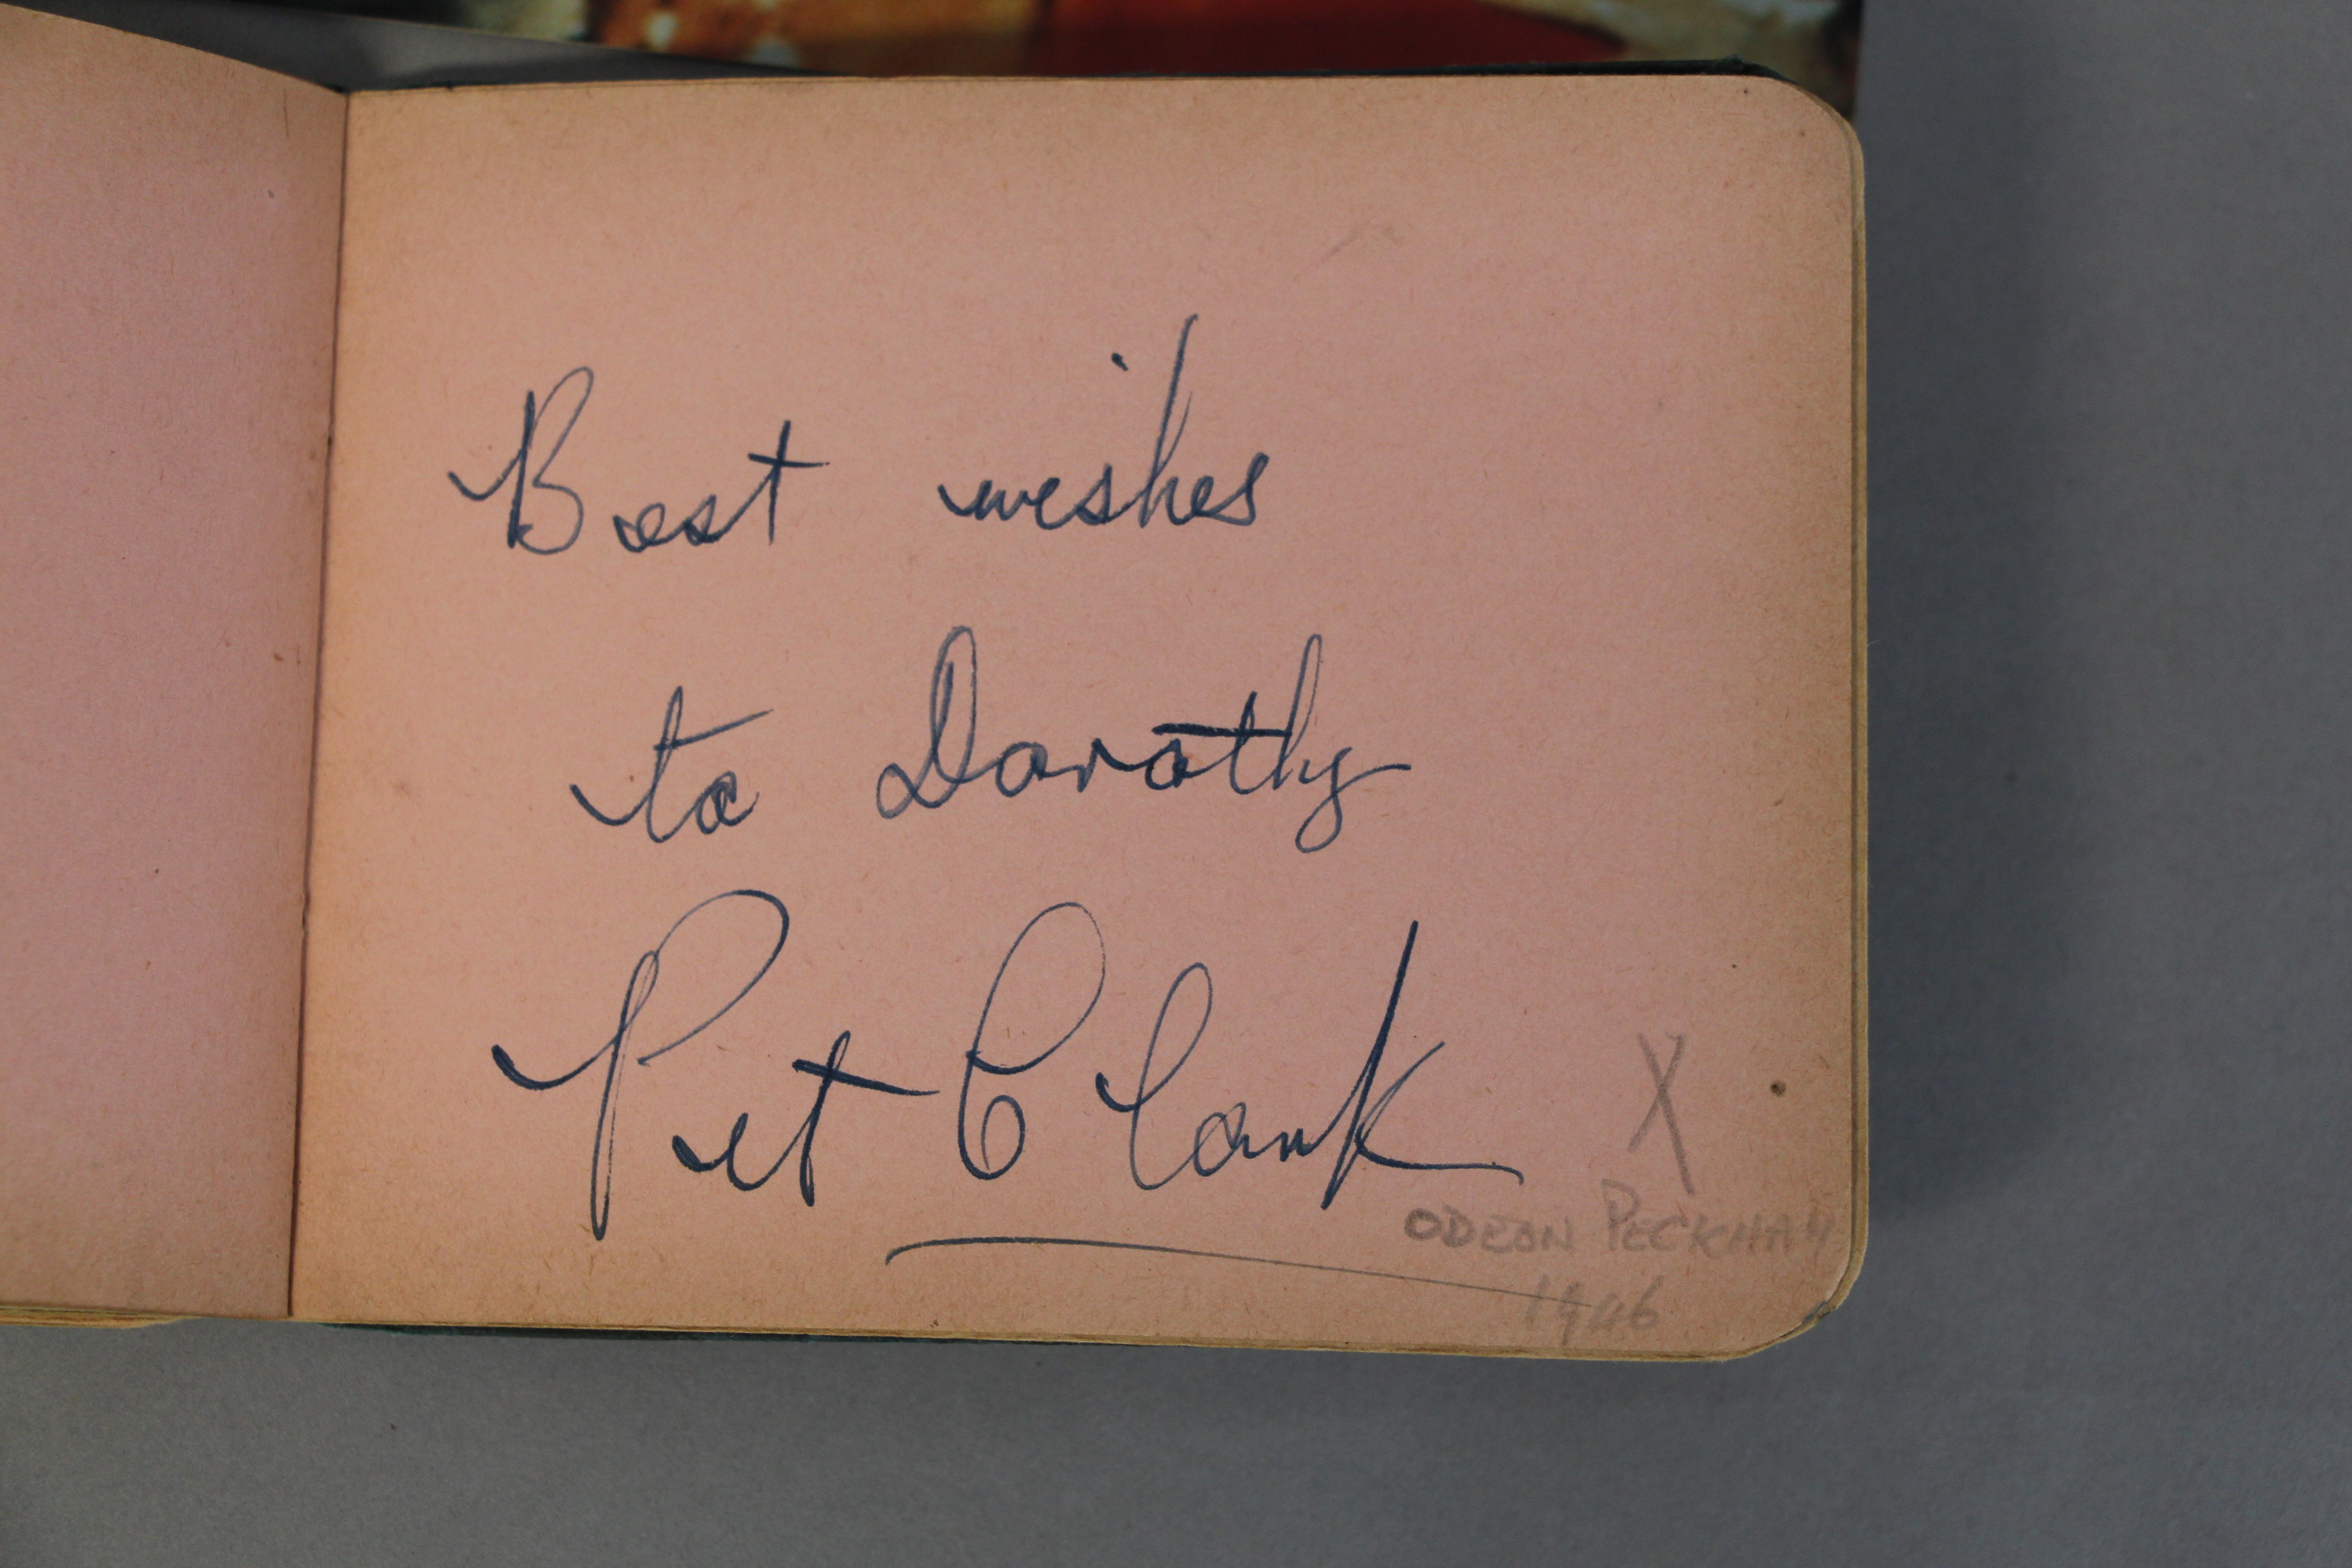 Best wishes
to Dorothy
Pet Clark
X
ODEON PECKHAM
1946